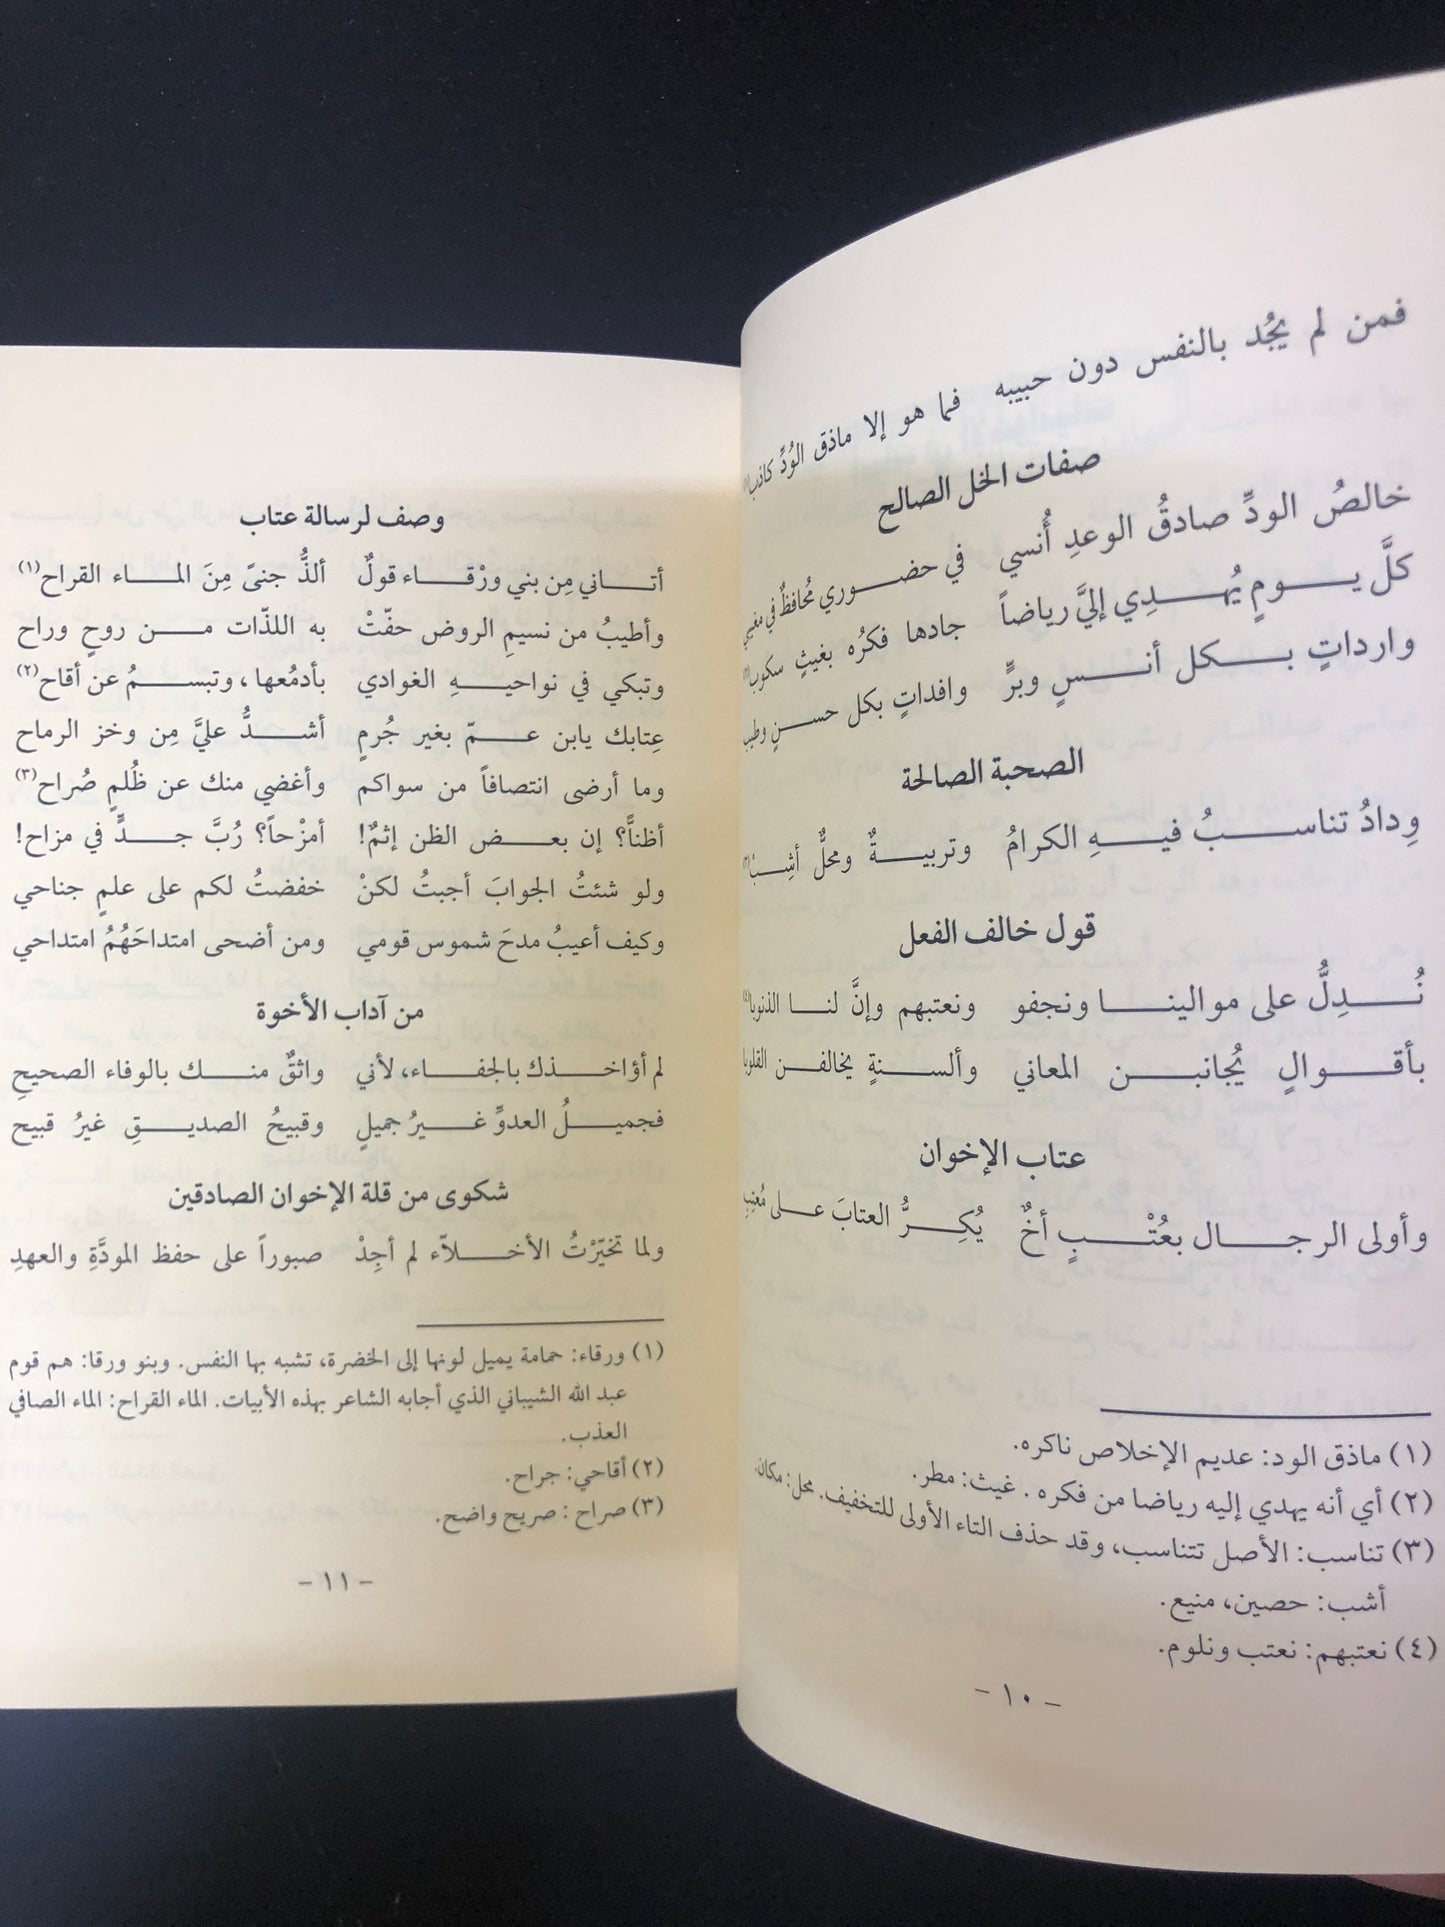 فمن لم يجُد بالنفس دون حبيبه فما هو إلا ماذق الوُدِّ كاذب(١)
صفات الخل الصالح
خالصُ الودِّ صادقُ الوعدِ أُنسي في حضوري مُحافظٌ في مغيبي
كلَّ يومٍ يُهدِي إليَّ رياضاً جادها فكرُه بغيثٍ سكوب(٢)
وارداتٍ بكل أنسٍ وبرٍّ وافداتٍ بكل حسنٍ وطيب
الصحبة الصالحة
وِدادُ تناسبُ فيهِ الكرامُ وتربيةٌ ومحلٌّ أشِبْ(٣)
قول خالف الفعل
نُدِلُّ على موالينا ونجفو ونعتبهم وإنَّ لنا الذنوبا(٤)
بأقوالٍ يُجانبن المعاني وألسنةٍ يخالفن القلوبا
عتاب الإخوان
وأولى الرجال بعُتْبٍ أخٌ يُكِرُّ العتابَ على مُعْتِبِ
(١) ماذق الود: عديم الإخلاص ناكره.
(٢) أي أنه يهدي إليه رياضا من فكره . غيث: مطر.
(٣) تناسب: الأصل تتناسب، وقد حذف التاء الأولى للتخفيف. محل: مكان.
أشب: حصين، منيع.
(٤) نعتبهم: نعتب ونلوم.
- ١٠ -
وصف لرسالة عتاب
أتاني مِن بني ورْقاء قولٌ ألذُّ جنىً مِنَ الماء القراح(١)
وأطيبُ من نسيمِ الروض حفّتْ به اللذّات من روحٍ وراح
وتبكي في نواحيهِ الغوادي بأدمُعها، وتبسمُ عن أقاح(٢)
عِتابك يابن عمّ بغير جُرمٍ أشدُّ عليَّ مِن وخز الرماح
وما أرضى انتصافاً من سواكم وأغضي منك عن ظُلمٍ صُراح(٣)
أظناًّ؟ إن بعض الظن إثمٌ! أمزْحاً؟ رُبَّ جدٍّ في مزاح!
ولو شئتُ الجوابَ أجبتُ لكنْ خفضتُ لكم على علمٍ جناحي
وكيف أعيبُ مدحَ شموس قومي ومن أضحى امتداحَهُمُ امتداحي
من آداب الأخوة
لم أؤاخذك بالجفاء، لأني واثقٌ منك بالوفاء الصحيحِ
فجميلُ العدوِّ غيرُ جميلٍ وقبيحُ الصديقِ غيرُ قبيح
شكوى من قلة الإخوان الصادقين
ولما تخيّرْتُ الأخلاّء لم أجِدْ صبوراً على حفظ المودَّةِ والعهدِ
(١) ورقاء: حمامة يميل لونها إلى الخضرة، تشبه بها النفس. وبنو ورقا: هم قوم
عبد الله الشيباني الذي أجابه الشاعر بهذه الأبيات. الماء القراح: الماء الصافي
العذب.
(٢) أقاحي: جراح.
(٣) صراح : صريح واضح.
- ١١ -